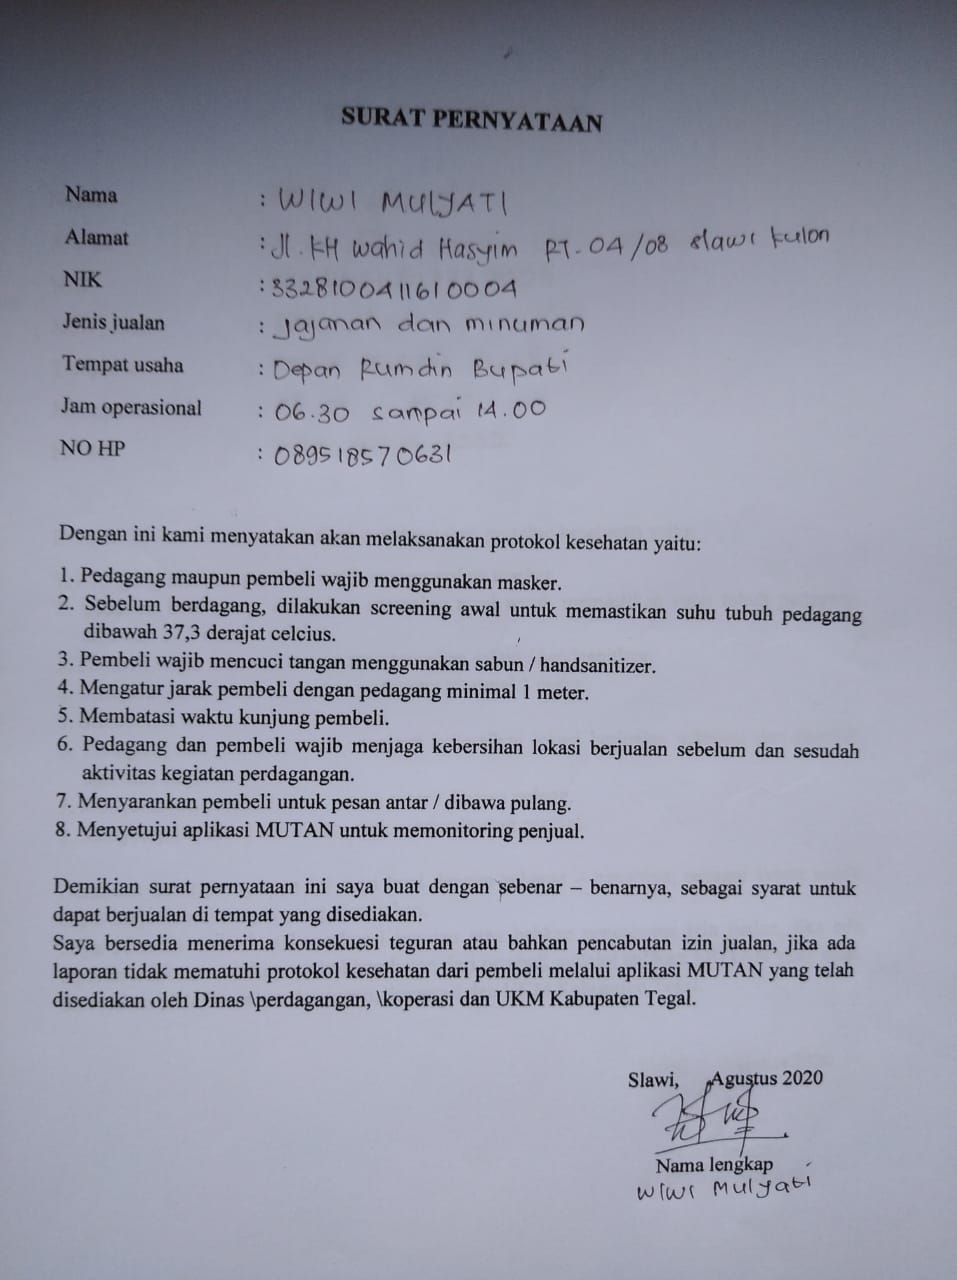 SURAT PERNYATAAN
Nama : WIWI MULYATI
Alamat : Jl. KH Wahid Hasyim RT. 04/08 slawi kulon
NIK : 3328100411610004
Jenis jualan : Jajanan dan minuman
Tempat usaha : Depan Rumdin Bupati
Jam operasional : 06.30 sampai 14.00
NO HP : 089518570631
Dengan ini kami menyatakan akan melaksanakan protokol kesehatan yaitu:
1. Pedagang maupun pembeli wajib menggunakan masker.
2. Sebelum berdagang, dilakukan screening awal untuk memastikan suhu tubuh pedagang
dibawah 37,3 derajat celcius.
3. Pembeli wajib mencuci tangan menggunakan sabun / handsanitizer.
4. Mengatur jarak pembeli dengan pedagang minimal 1 meter.
5. Membatasi waktu kunjung pembeli.
6. Pedagang dan pembeli wajib menjaga kebersihan lokasi berjualan sebelum dan sesudah
aktivitas kegiatan perdagangan.
7. Menyarankan pembeli untuk pesan antar / dibawa pulang.
8. Menyetujui aplikasi MUTAN untuk memonitoring penjual.
Demikian surat pernyataan ini saya buat dengan sebenar – benarnya, sebagai syarat untuk
dapat berjualan di tempat yang disediakan.
Saya bersedia menerima konsekuesi teguran atau bahkan pencabutan izin jualan, jika ada
laporan tidak mematuhi protokol kesehatan dari pembeli melalui aplikasi MUTAN yang telah
disediakan oleh Dinas \perdagangan, \koperasi dan UKM Kabupaten Tegal.
Slawi, Agustus 2020
Nama lengkap
Wiwi Mulyati